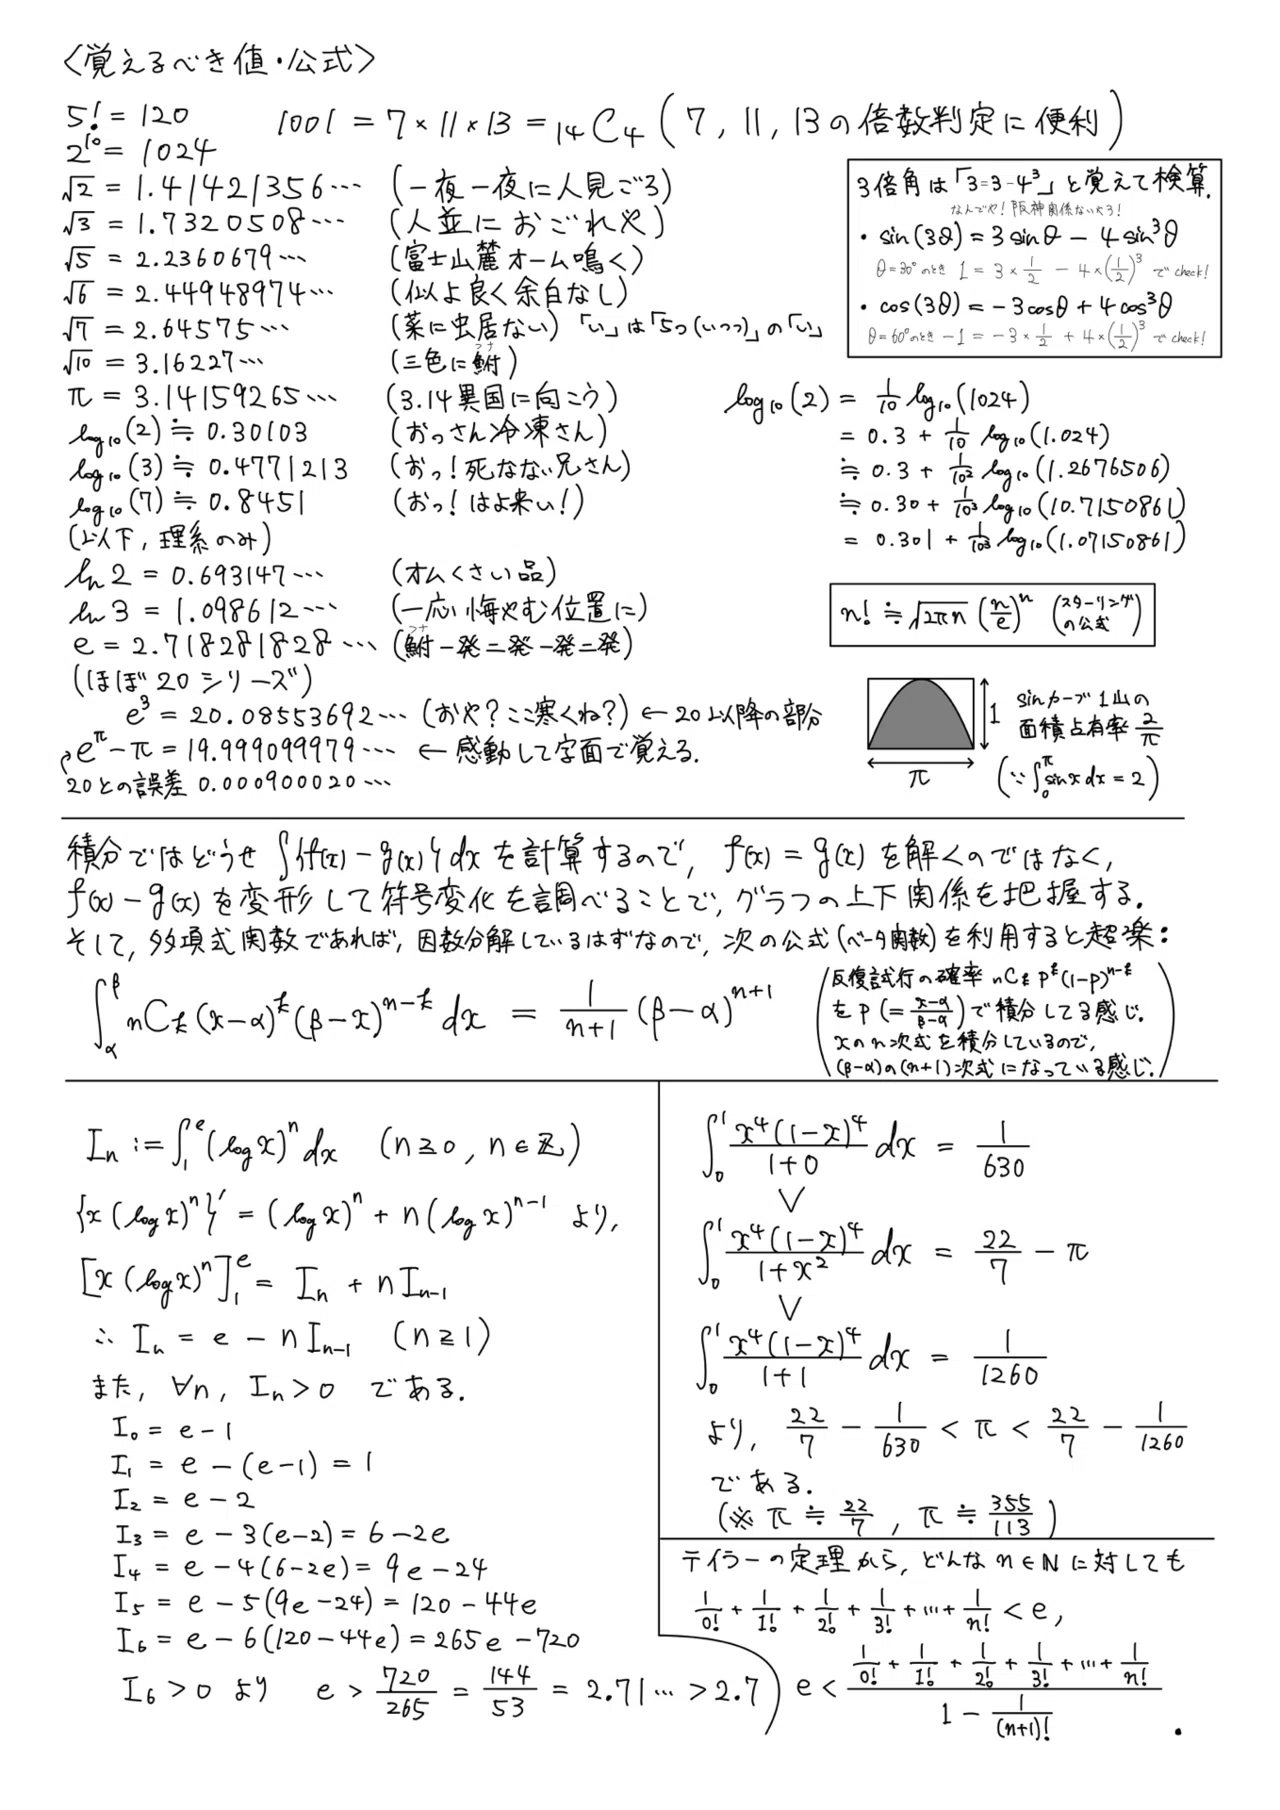 〈覚えるべき値・公式〉
5! = 120
1001 = 7×11×13 = ₁₄C₄ (7, 11, 13の倍数判定に便利)
2¹⁰ = 1024
√2 = 1.41421356… (一夜一夜に人見ごろ)
√3 = 1.7320508… (人並におごれや)
√5 = 2.2360679… (富士山麓オーム鳴く)
√6 = 2.44948974… (似よ良く余白なし)
√7 = 2.64575… (菜に虫居ない) 「い」は「5つ(いつつ)」の「い」
√10 = 3.16227… (三色に鮒)
フナ
π = 3.14159265… (3.14異国に向こう)
log₁₀(2) ≒ 0.30103 (おっさん冷凍さん)
log₁₀(3) ≒ 0.4771213 (おっ!死なない兄さん)
log₁₀(7) ≒ 0.8451 (おっ!はよ来い!)
(以下, 理系のみ)
ln 2 = 0.693147… (オムくさい品)
ln 3 = 1.098612… (一応悔やむ位置に)
e = 2.718281828… (鮒一発二発一発二発)
フナ
(ほぼ20シリーズ)
e³ = 20.08553692… (おや?ここ寒くね?) ← 20以降の部分
e^π − π = 19.999099979… ← 感動して字面で覚える.
20との誤差 0.000900020…
3倍角は「3=3-4³」と覚えて検算.
なんでや!阪神関係ないやろ!
・sin(3θ) = 3sinθ − 4sin³θ
θ=30°のとき 1 = 3×1/2 − 4×(1/2)³ でcheck!
・cos(3θ) = −3cosθ + 4cos³θ
θ=60°のとき −1 = −3×1/2 + 4×(1/2)³ でcheck!
log₁₀(2) = 1/10 log₁₀(1024)
= 0.3 + 1/10 log₁₀(1.024)
≒ 0.3 + 1/10² log₁₀(1.2676506)
≒ 0.30 + 1/10³ log₁₀(10.7150861)
= 0.301 + 1/10³ log₁₀(1.07150861)
n! ≒ √(2πn) (n/e)ⁿ (スターリングの公式)
1
π
sinカーブ1山の
面積占有率 2/π
(∵ ∫₀^π sinx dx = 2)
積分ではどうせ ∫{f(x) − g(x)}dx を計算するので, f(x) = g(x) を解くのではなく,
f(x) − g(x) を変形して符号変化を調べることで, グラフの上下関係を把握する.
そして, 多項式関数であれば, 因数分解しているはずなので, 次の公式(ベータ関数)を利用すると超楽:
∫_α^β nCk (x−α)^k (β−x)^(n−k) dx = 1/(n+1) (β−α)^(n+1)
反復試行の確率 nCk p^k (1−p)^(n−k)
を p (= (x−α)/(β−α)) で積分してる感じ.
xのn次式を積分しているので,
(β−α)の(n+1)次式になっている感じ.
Iₙ := ∫₁^e (log x)ⁿ dx (n≧0, n∈ℤ)
{x(log x)ⁿ}' = (log x)ⁿ + n(log x)^(n−1) より,
[x(log x)ⁿ]₁^e = Iₙ + nIₙ₋₁
∴ Iₙ = e − nIₙ₋₁ (n≧1)
また, ∀n, Iₙ>0 である.
I₀ = e−1
I₁ = e − (e−1) = 1
I₂ = e − 2
I₃ = e − 3(e−2) = 6 − 2e
I₄ = e − 4(6−2e) = 9e − 24
I₅ = e − 5(9e−24) = 120 − 44e
I₆ = e − 6(120−44e) = 265e − 720
I₆ > 0 より e > 720/265 = 144/53 = 2.71… > 2.7
∫₀¹ x⁴(1−x)⁴/(1+0) dx = 1/630
∨
∫₀¹ x⁴(1−x)⁴/(1+x²) dx = 22/7 − π
∨
∫₀¹ x⁴(1−x)⁴/(1+1) dx = 1/1260
より, 22/7 − 1/630 < π < 22/7 − 1/1260
である.
(※ π ≒ 22/7, π ≒ 355/113)
テイラーの定理から, どんな n∈ℕ に対しても
1/0! + 1/1! + 1/2! + 1/3! + … + 1/n! < e,
e < (1/0! + 1/1! + 1/2! + 1/3! + … + 1/n!)/(1 − 1/(n+1)!) .